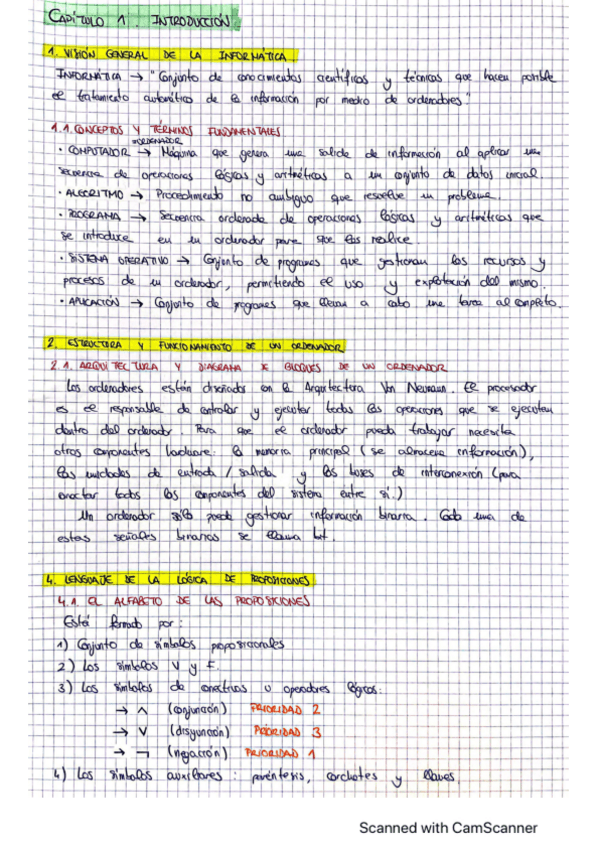 CAPÍTULO 1. INTRODUCCIÓN
1. VISIÓN GENERAL DE LA INFORMÁTICA.
INFORMÁTICA → "Conjunto de conocimientos científicos y técnicas que hacen posible
el tratamiento automático de la información por medio de ordenadores."
1.1. CONCEPTOS Y TÉRMINOS FUNDAMENTALES
=ORDENADOR
· COMPUTADOR → Máquina que genera una salida de información al aplicar una
secuencia de operaciones lógicas y aritméticas a un conjunto de datos inicial
· ALGORITMO → Procedimiento no ambiguo que resuelve un problema.
· PROGRAMA → Secuencia ordenada de operaciones lógicas y aritméticas que
se introduce en un ordenador para que las realice.
· SISTEMA OPERATIVO → Conjunto de programas que gestionan los recursos y
procesos de un ordenador, permitiendo el uso y explotación del mismo.
· APLICACIÓN → Conjunto de programas que llevan a cabo una tarea al completo.
2. ESTRUCTURA Y FUNCIONAMIENTO DE UN ORDENADOR
2.1. ARQUITECTURA Y DIAGRAMA DE BLOQUES DE UN ORDENADOR
Los ordenadores están diseñados con la Arquitectura Von Neumann. El procesador
es el responsable de controlar y ejecutar todas las operaciones que se ejecutan
dentro del ordenador. Para que el ordenador pueda trabajar necesita
otros componentes hardware: la memoria principal (se almacena información),
las unidades de entrada / salida y los buses de interconexión (para
conectar todos los componentes del sistema entre sí.)
Un ordenador sólo puede gestionar información binaria. Cada una de
estas señales binarias se llama bit.
4. LENGUAJE DE LA LÓGICA DE PROPOSICIONES
4.1. EL ALFABETO DE LAS PROPOSICIONES
Está formado por:
1) Conjunto de símbolos proposicionales
2) Los símbolos V y F.
3) Los símbolos de conectivas u operadores lógicos:
→ ∧ (conjunción) PRIORIDAD 2
→ ∨ (disyunción) PRIORIDAD 3
→ ¬ (negación) PRIORIDAD 1
4) Los símbolos auxiliares: paréntesis, corchetes y llaves.
Scanned with CamScanner